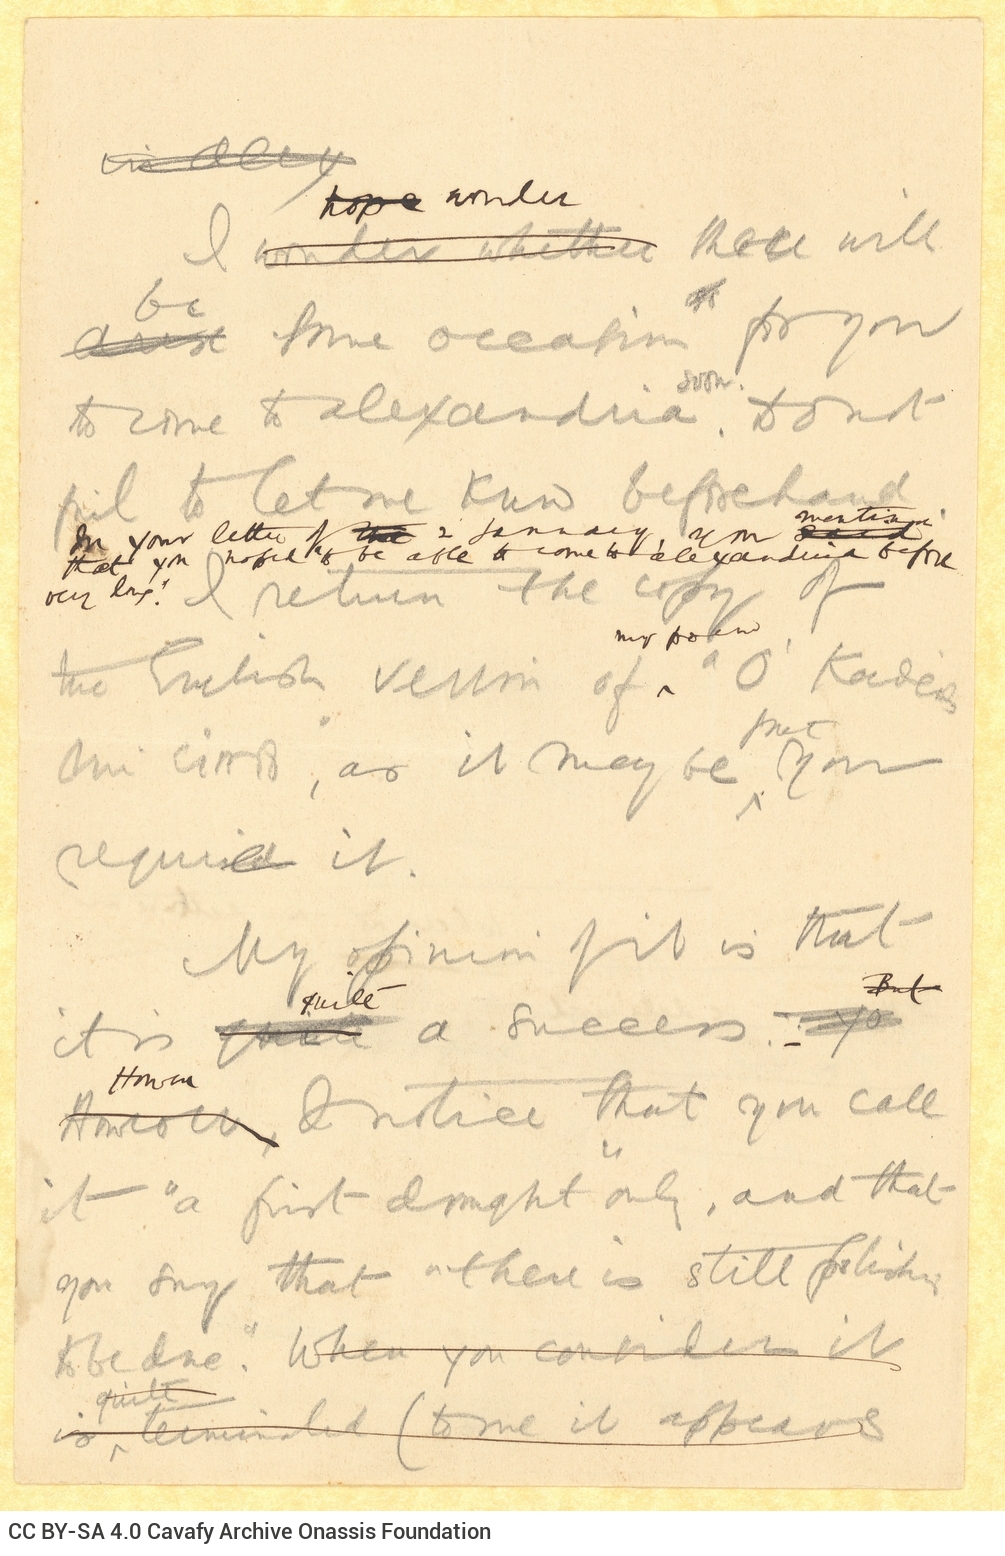 hope wonder
I wonder whether there will
be
some occasion for you
soon.
to come to Alexandria. Do not
fail to let me know beforehand
In your letter of the 2 January, you said mention
that you "hoped to be able to come to Alexandria before
very long". I return the copy of
my poem
the English version of "O
, as it may be that you
require it.
My opinion of it is that
quite
it is quite a success. But
Howev
However, I notice that you call
it "a first draught" only, and that
you say that "there is still polishing
to be done." When you consider it
quite
is terminated (to me it appears
CC BY-SA 4.0 Cavafy Archive Onassis Foundation